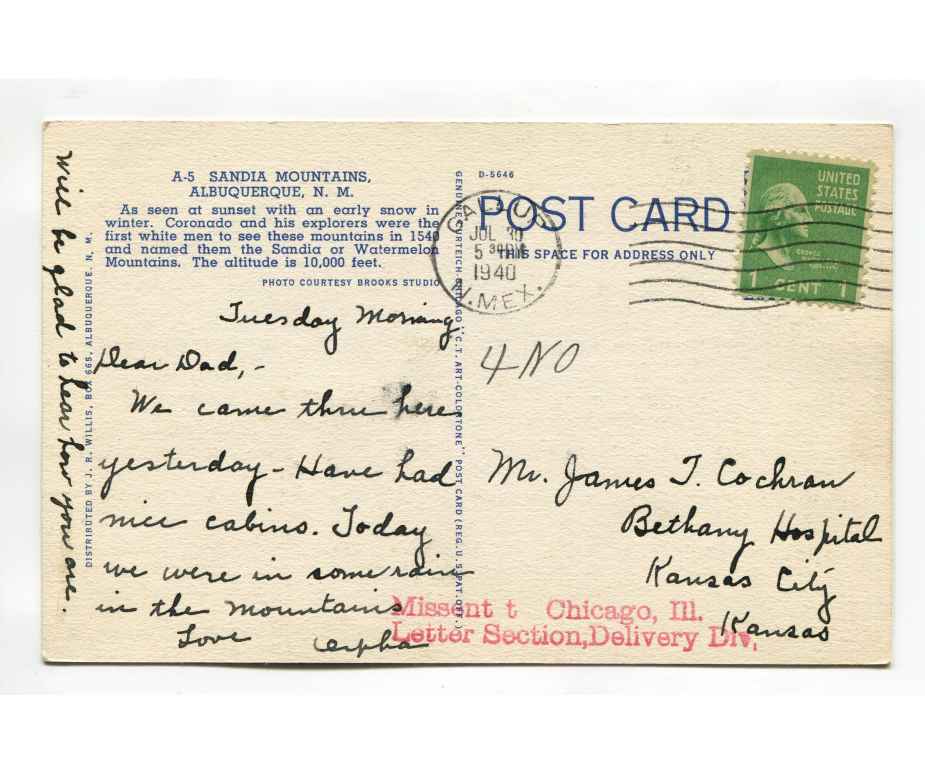 A-5 SANDIA MOUNTAINS,
ALBUQUERQUE, N. M.
As seen at sunset with an early snow in
winter. Coronado and his explorers were the
first white men to see these mountains in 1540
and named them the Sandia or Watermelon
Mountains. The altitude is 10,000 feet.
PHOTO COURTESY BROOKS STUDIO
Tuesday Morning,
Dear Dad,-
We came thru here
yesterday - Have had
nice cabins. Today
we were in some rain
in the mountains
Love
Will be glad to hear how you are.
DISTRIBUTED BY J. R. WILLIS, BOX 665, ALBUQUERQUE, N. M.
GENUINE CURTEICH-CHICAGO "C.T. ART-COLORTONE" POST CARD (REG. U.S. PAT. OFF.)
D-5646
POST CARD
THIS SPACE FOR ADDRESS ONLY
GALLUP
JUL 30
5 30 PM
1940
N. MEX.
UNITED
STATES
POSTAGE
GEORGE
1 CENT 1
4 NO
Mr. James T. Cochran
Bethany Hospital
Kansas City
Kansas
Missent t Chicago, Ill.
Letter Section, Delivery Div.